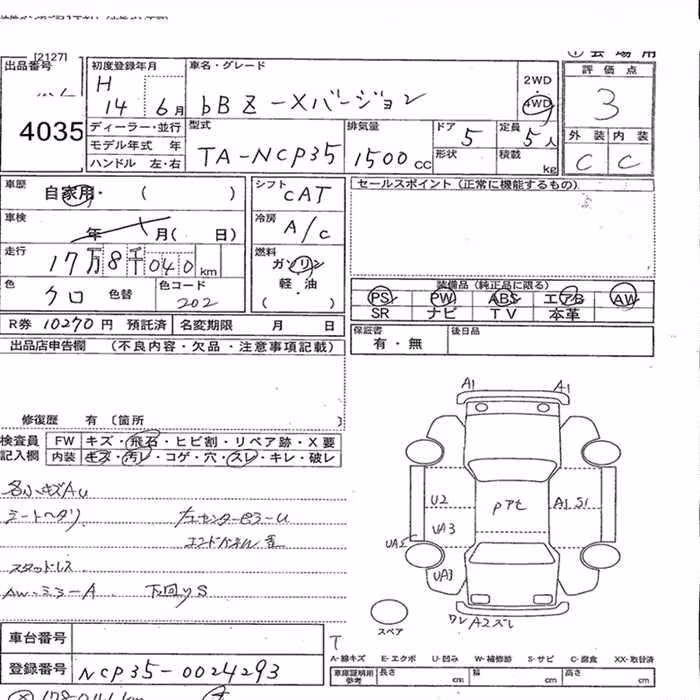 [2127]
出品番号
4035
初度登録年月
H
14 6月
車名・グレード
bB Z-Xバージョン
2WD
・
4WD
評価点
3
外装 内装
C C
ディーラー・並行
モデル年式 年
ハンドル 左・右
型式
TA-NCP35
排気量
1500 cc
ドア
5
形状
定員
5人
積載
kg
車歴
自家用・( )
車検
年 月( 日)
走行
17万8千040km
色
クロ 色替
色コード
202
シフト
CAT
冷房
A/C
燃料
ガソリン
軽・油
( )
セールスポイント (正常に機能するもの)
装備品 (純正品に限る)
PS PW ABS エアB AW
SR ナビ TV 本革
R券 10270円 預託済 名変期限 月 日
保証書
有・無
後日品
出品店申告欄 (不良内容・欠品・注意事項記載)
修復歴 有 〔箇所 〕
検査員
記入欄
FW キズ・飛石・ヒビ割・リペア跡・X要
内装 キズ・汚レ・コゲ・穴・スレ・キレ・破レ
シートヘタリ
スタッドレス
下回りS
A1 A1
U2
UA3
A1 S1
UA3
スペア
車台番号
登録番号 NCP35-0024293
A-線キズ E-エクボ U-凹み W-補修跡 S-サビ C-腐食 XX-取替済
車庫証明用
参考
長さ cm 幅 cm 高さ cm